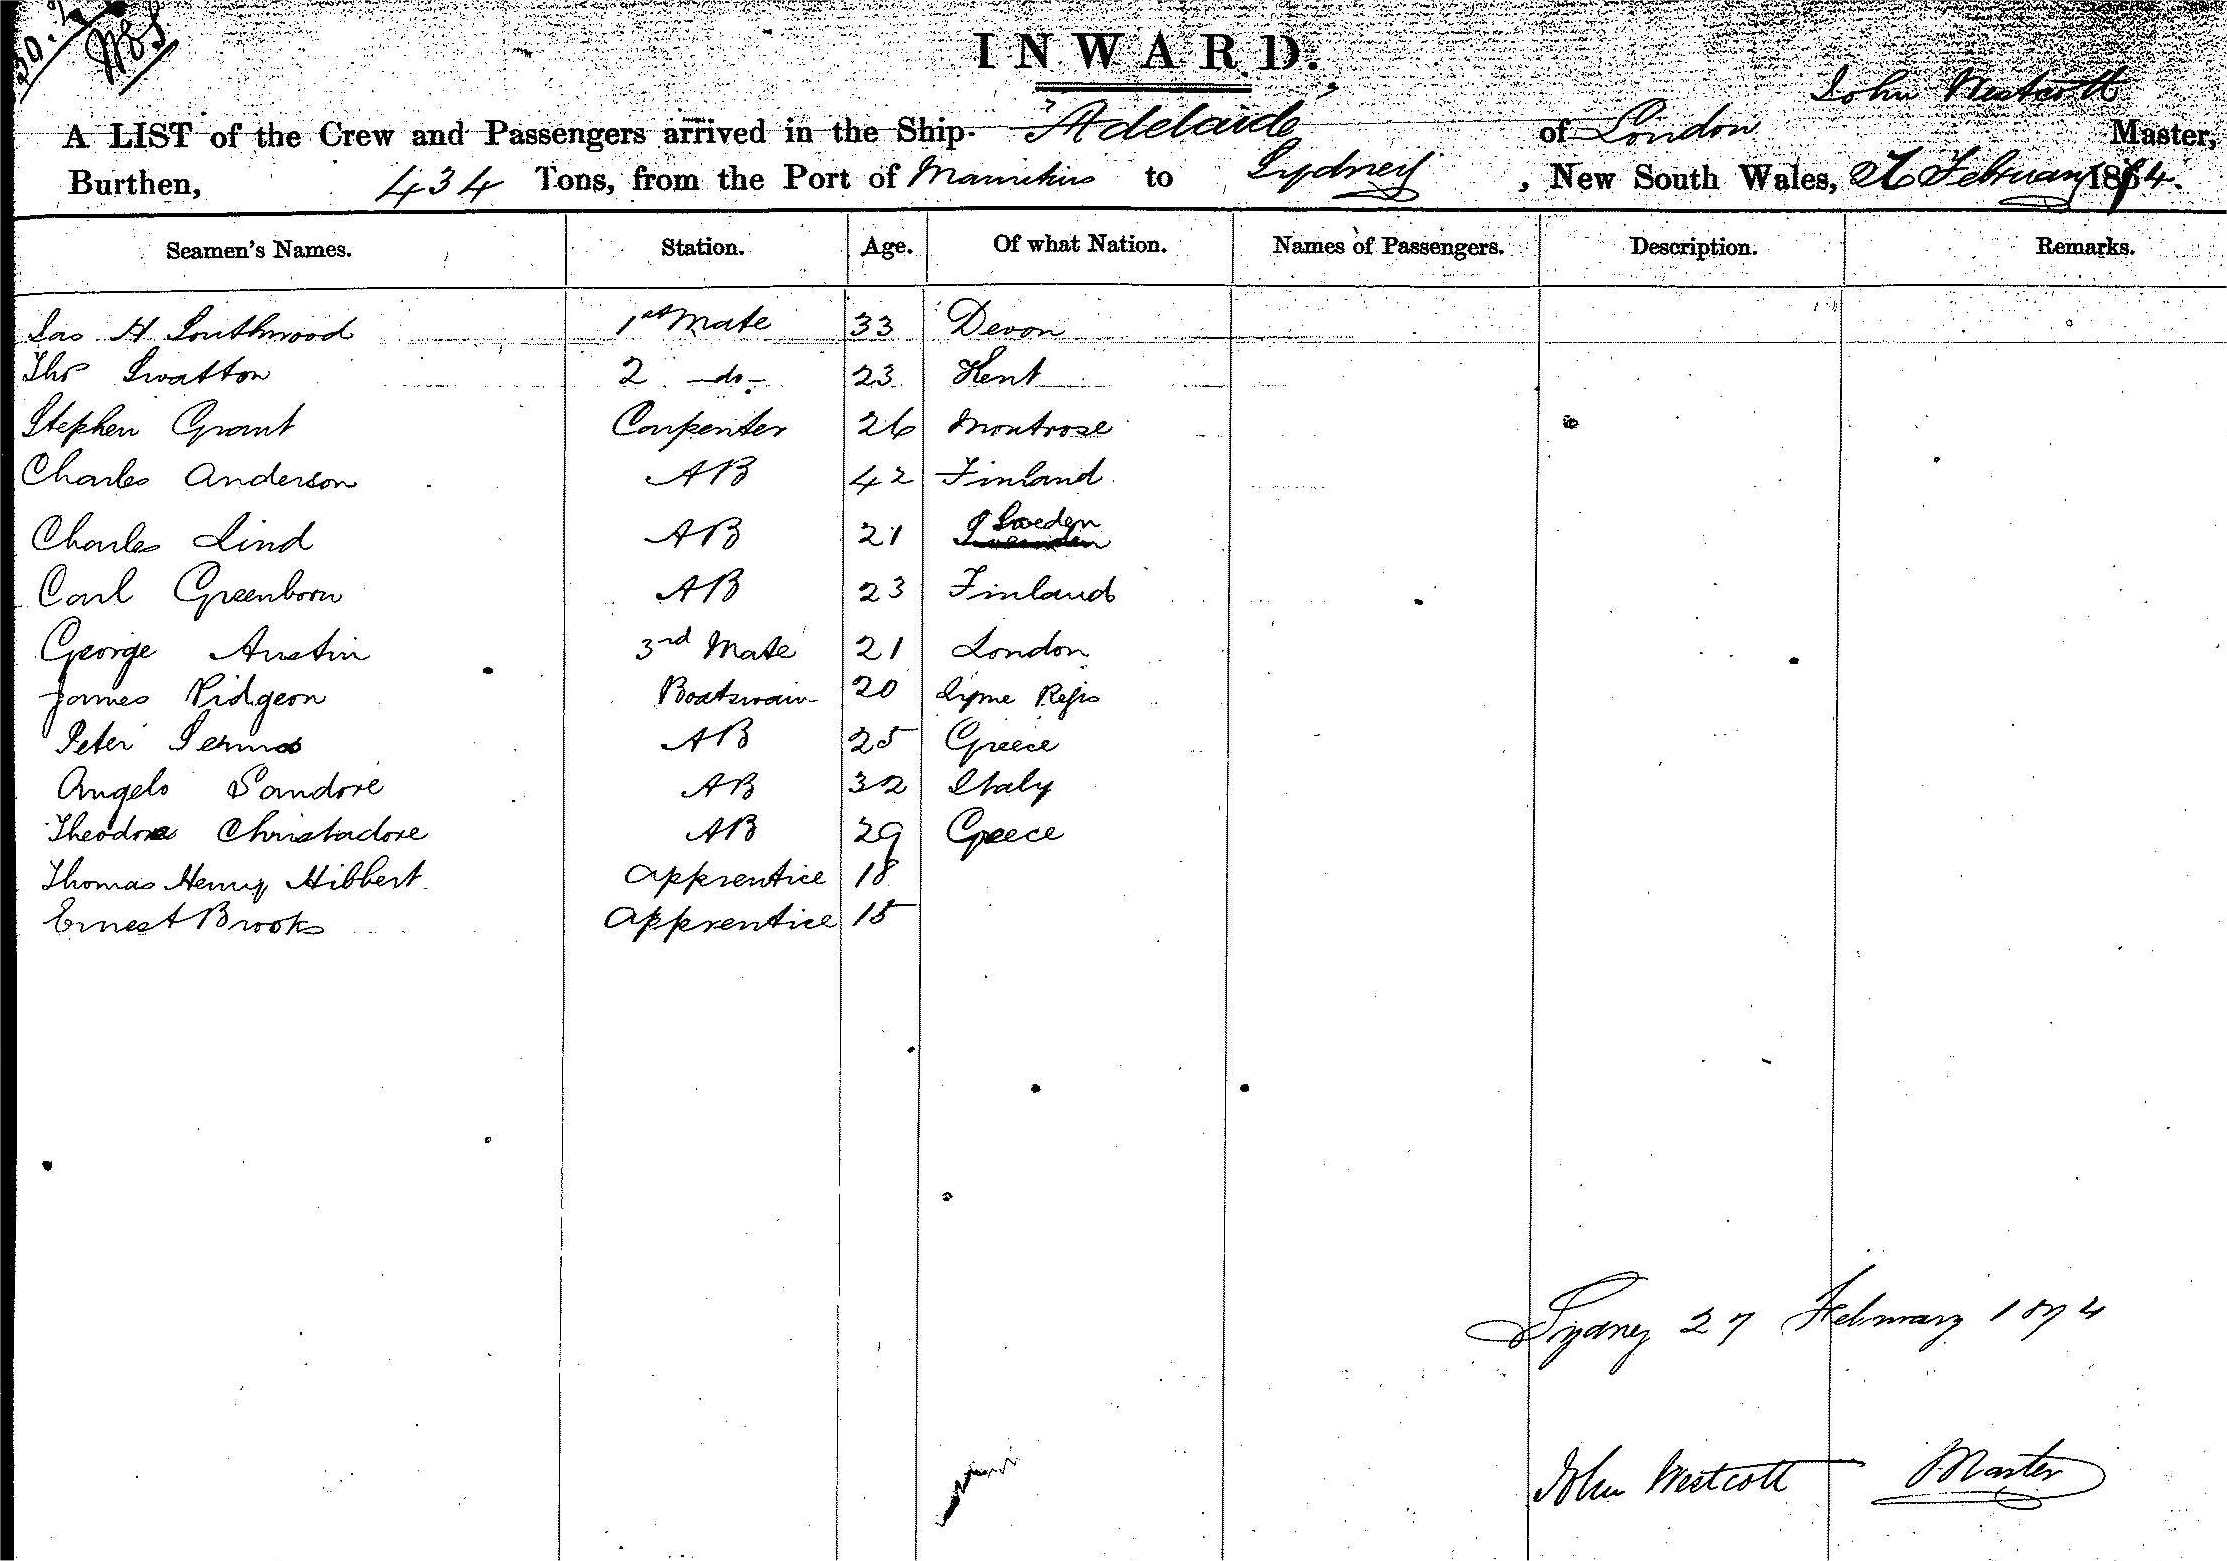 INWARD.
John Westcott
A LIST of the Crew and Passengers arrived in the Ship "Adelaide" of London Master,
Burthen, 434 Tons, from the Port of Mauritius to Sydney, New South Wales, 27 February 1874.
Seamen's Names. Station. Age. Of what Nation. Names of Passengers. Description. Remarks.
Jas H Southwood 1st Mate 33 Devon
Thos Swatton 2 -do- 23 Kent
Stephen Grant Carpenter 26 Montrose
Charles Anderson AB 42 Finland
Charles Lind AB 21 Sweden
Carl Greenborn AB 23 Finland
George Austin 3rd Mate 21 London
James Pidgeon Boatswain 20 Lyme Regis
Peter AB 25 Greece
Angelo Sandore AB 32 Italy
Theodore Christadore AB 29 Greece
Thomas Henry Hibbert Apprentice 18
Ernest Brooks Apprentice 15
Sydney 27 February 1874
John Westcott Master